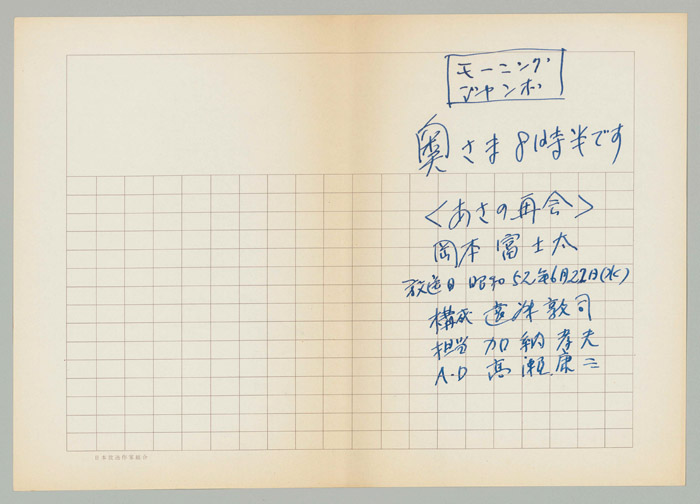 モーニング
ジャンボ
奥さま8時半です
<あさの再会>
岡本富士太
放送日 昭和52年6月22日(水)
構成 遠藤敦司
担当 加納孝夫
A・D 高瀬康二
日本放送作家組合